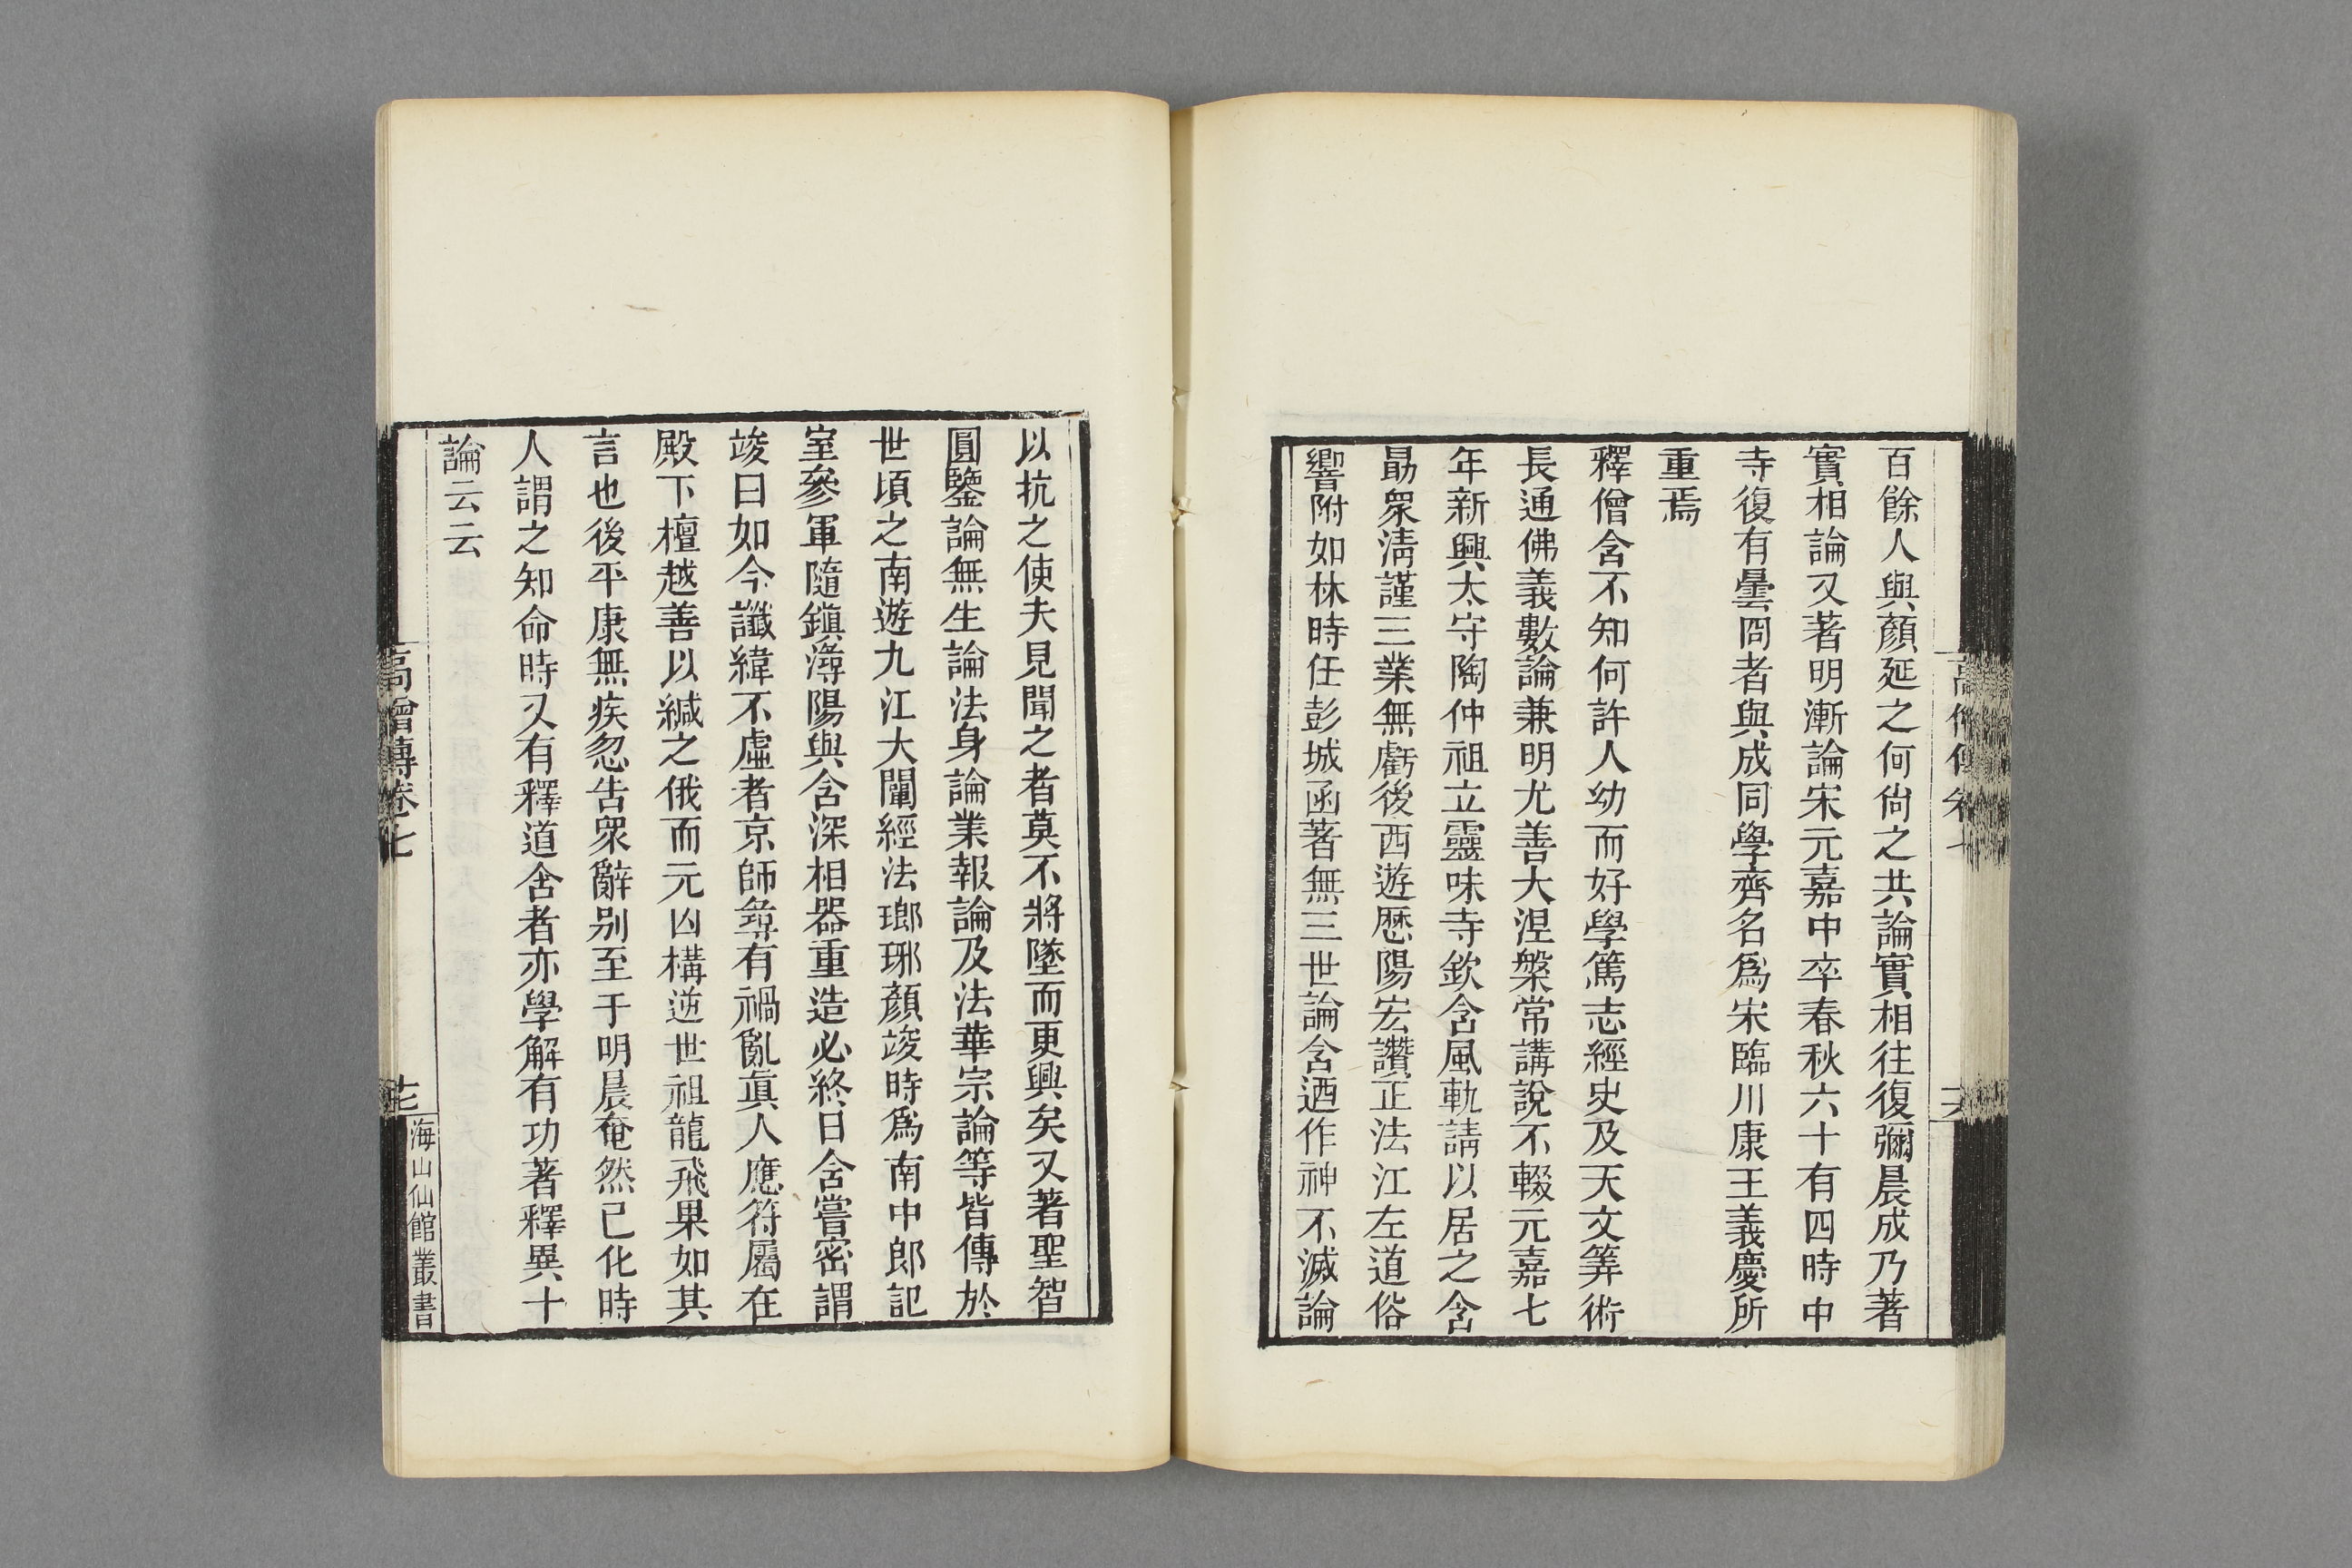 百餘人與顏延之何尙之共論實相往復彌晨成乃著
實相論又著明漸論宋元嘉中卒春秋六十有四時中
寺復有曇冏者與成同學齊名爲宋臨川康王義慶所
重焉
釋僧含不知何許人幼而好學篤志經史及天文筭術
長通佛義數論兼明尤善大涅槃常講說不輟元嘉七
年新興太守陶仲祖立靈味寺欽含風軌請以居之含
勗衆淸謹三業無虧後西遊歷陽宏讚正法江左道俗
響附如林時任彭城函著無三世論含迺作神不滅論
以抗之使夫見聞之者莫不將墜而更興矣又著聖智
圓鑒論無生論法身論業報論及法華宗論等皆傳於
世頃之南遊九江大闡經法瑯琊顏竣時爲南中郎記
室參軍隨鎭潯陽與含深相器重造必終日含嘗密謂
竣曰如今讖緯不虛者京師尋有禍亂眞人應符屬在
殿下檀越善以緘之俄而元凶構逆世祖龍飛果如其
言也後平康無疾忽告衆辭别至于明晨奄然已化時
人謂之知命時又有釋道含者亦學解有功著釋異十
論云云
高僧傳卷七
七
海山仙館叢書